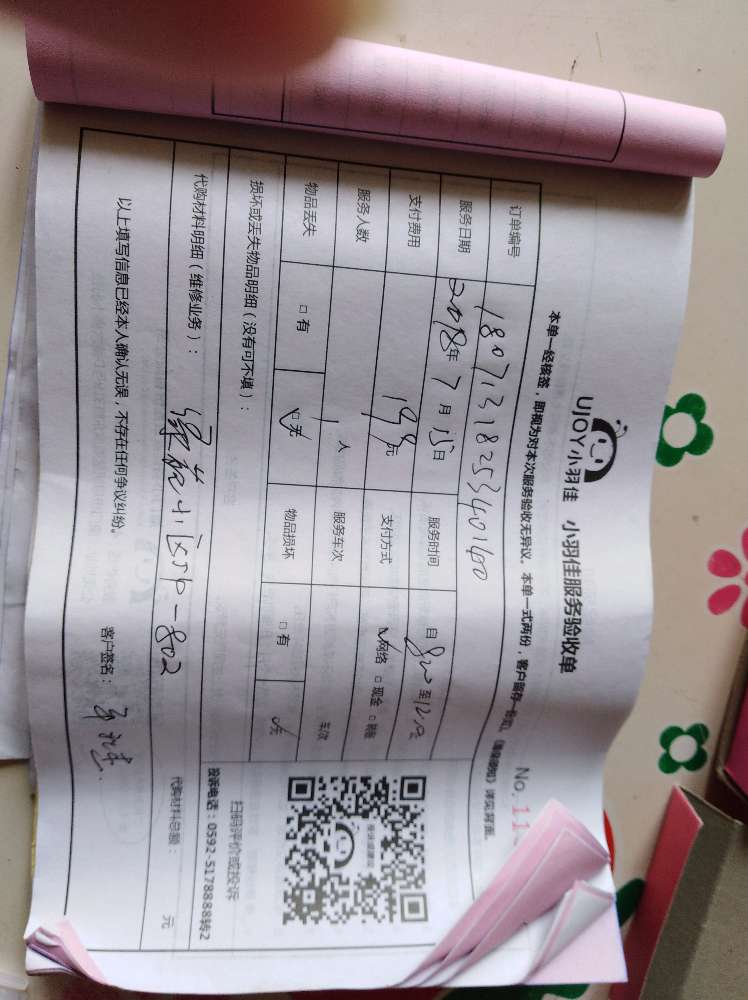 UJOY小羽佳 小羽佳服务验收单
No. 11
本单一经核签，即视为对本次服务验收无异议。本单一式两份，客户留存一份
详见背面。
订单编号 1807131825340160
服务日期 2018年 7月 15日 服务时间 自 8:00 至 12:00
支付费用 198元 支付方式 ☑网络 □现金 □
服务人数 1人 服务车次 车次
物品丢失 □有 ☑无 物品损坏 □有 ☑无
损坏或丢失物品明细（没有可不填）：
扫码评价或投诉
投诉电话：0592-5178888转2
代购材料明细（维修业务）： 小区59-802
代购材料总额： 元
以上填写信息已经本人确认无误，不存在任何争议纠纷。 客户签名：